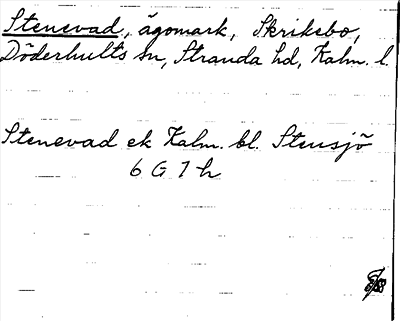 Stenevad, ägomark, Skriksbo,
Döderhults sn, Stranda hd, Kalm. l.
Stenevad ek Kalm. bl. Stensjö
6 G 7 h